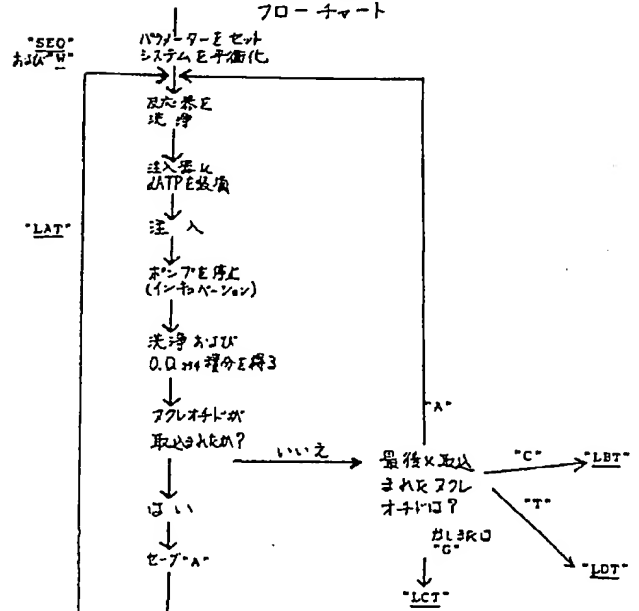 フローチャート
"SEQ"
および"W"
パラメーターをセット
システムを平衡化
反応器を
洗浄
注入器に
dATPを装填
"LAT"
注入
ポンプを停止
(インキュベーション)
洗浄および
O.D.254積分を得る
ヌクレオチドが
取込まれたか?
いいえ
"A"
最後に取込
まれたヌクレ
オチドは?
"C"
"LBT"
"T"
"LDT"
"G"
"LCT"
はい
セーブ"A"